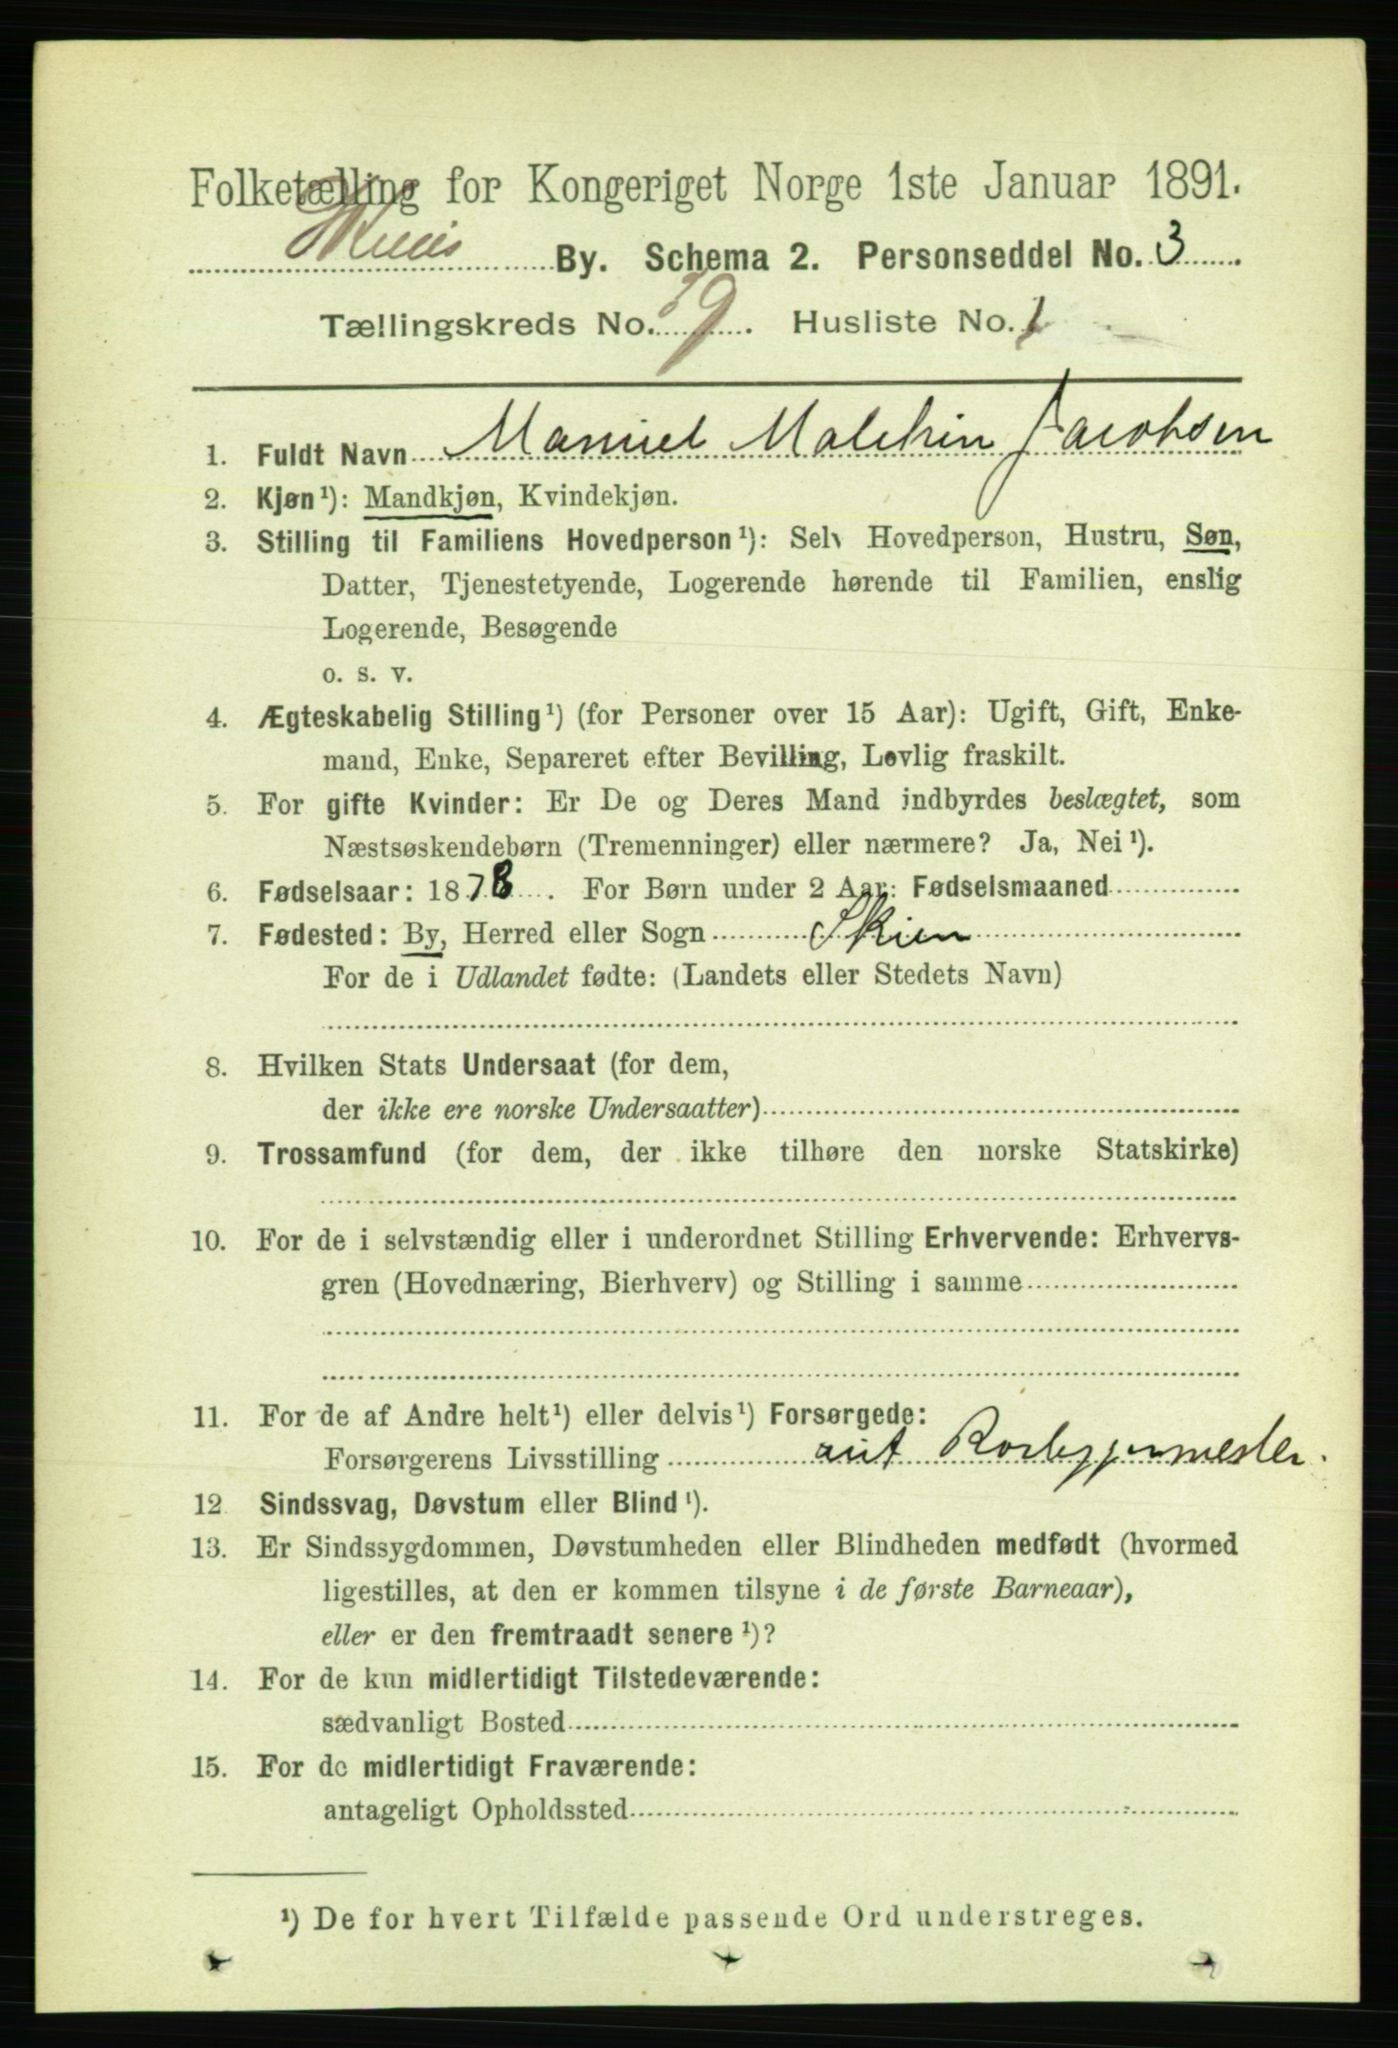 Folketælling for Kongeriget Norge 1ste Januar 1891.
Skiens By. Schema 2. Personseddel No. 3
Tællingskreds No. 9. Husliste No. 1
1. Fuldt Navn Manuel Malchin Jacobsen
2. Kjøn¹): Mandkjøn, Kvindekjøn.
3. Stilling til Familiens Hovedperson¹): Selv Hovedperson, Hustru, Søn,
Datter, Tjenestetyende, Logerende hørende til Familien, enslig
Logerende, Besøgende
o. s. v.
4. Ægteskabelig Stilling¹) (for Personer over 15 Aar): Ugift, Gift, Enke-
mand, Enke, Separeret efter Bevilling, Lovlig fraskilt.
5. For gifte Kvinder: Er De og Deres Mand indbyrdes beslægtet, som
Næstsøskendebørn (Tremenninger) eller nærmere? Ja, Nei¹).
6. Fødselsaar: 1878. For Børn under 2 Aar: Fødselsmaaned
7. Fødested: By, Herred eller Sogn Skien
For de i Udlandet fødte: (Landets eller Stedets Navn)
8. Hvilken Stats Undersaat (for dem,
der ikke ere norske Undersaatter)
9. Trossamfund (for dem, der ikke tilhøre den norske Statskirke)
10. For de i selvstændig eller i underordnet Stilling Erhvervende: Erhvervs-
gren (Hovednæring, Bierhverv) og Stilling i samme
11. For de af Andre helt¹) eller delvis¹) Forsørgede:
Forsørgerens Livsstilling
12. Sindssvag, Døvstum eller Blind¹).
13. Er Sindssygdommen, Døvstumheden eller Blindheden medfødt (hvormed
ligestilles, at den er kommen tilsyne i de første Barneaar),
eller er den fremtraadt senere¹)?
14. For de kun midlertidigt Tilstedeværende:
sædvanligt Bosted
15. For de midlertidigt Fraværende:
antageligt Opholdssted
¹) De for hvert Tilfælde passende Ord understreges.